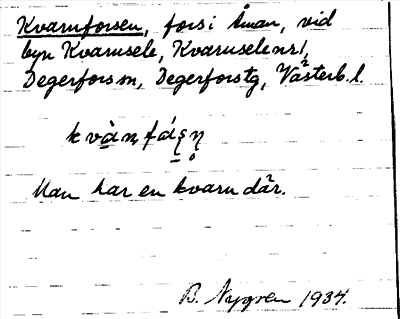 Kvarnforsen, fors i Åman, vid
byn Kvarnsele, Kvarnsele nr 1,
Degerfors sn, Degerfors tg, Västerb. l.
Man har en kvarn där.
B. Nygren 1934.